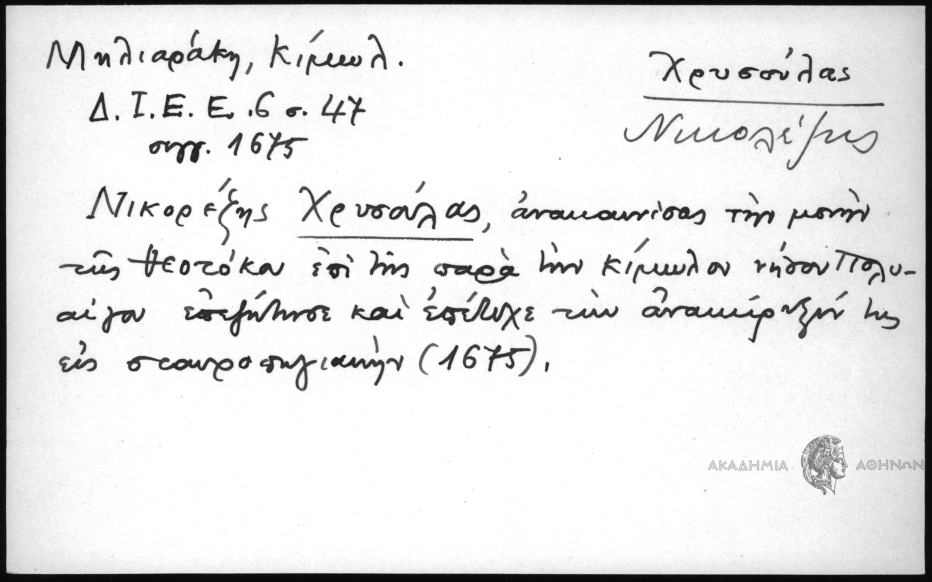 Μηλιαράκη, Κίμωλ.
Δ. Ι. Ε. Ε. .6 σ. 47
σιγγ. 1675
Χρυσούλας
Νικολέζης
Νικορέζης Χρυσούλας, ἀνακαινίσας τὴν μονὴν
τῆς Θεοτόκου ἐπὶ τῆς παρὰ τὴν Κίμωλον νήσου Πολυ-
αίγου ἐπεζήτησε καὶ ἐπέτυχε τὴν ἀνακήρυξίν της
εἰς σταυροπηγιακὴν (1675).
ΑΚΑΔΗΜΙΑ ΑΘΗΝΩΝ